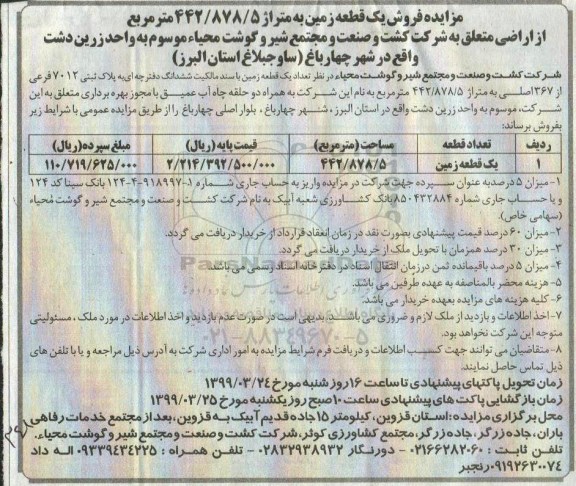 مزایده فروش یک قطعه زمین به متراژ ۴۴۲/۸۷۸/۵ متر مربع
از اراضی متعلق به شرکت کشت و صنعت و مجتمع شیر و گوشت محیاء موسوم به واحد زرین دشت
واقع در شهر چهارباغ (ساوجبلاغ استان البرز)
شرکت کشت و صنعت و مجتمع شیر و گوشت محیاء در نظر دارد تعداد یک قطعه زمین با سند مالکیت ششدانگ دفترچه ای به پلاک ثبتی ۷۰۱۲ فرعی
از ۳۶۷ اصلی به متراژ ۴۴۲/۸۷۸/۵ متر مربع به نام این شرکت به همراه دو حلقه چاه آب عمیق با مجوز بهره برداری متعلق به این
شرکت، موسوم به واحد زرین دشت واقع در استان البرز، شهر چهارباغ، بلوار اصلی چهارباغ را از طریق مزایده عمومی با شرایط زیر
بفروش برساند:
ردیف تعداد قطعه مساحت (متر مربع) قیمت پایه (ریال) مبلغ سپرده (ریال)
۱ یک قطعه زمین ۴۴۲/۸۷۸/۵ ۲/۲۱۴/۳۹۲/۵۰۰/۰۰۰ ۱۱۰/۷۱۹/۶۲۵/۰۰۰
۱- میزان ۵ درصد به عنوان سپرده جهت شرکت در مزایده واریز به حساب جاری شماره ۱-۹۱۸۹۹۷-۴-۱۲۴ بانک سینا کد ۱۲۴
و یا حساب جاری شماره ۸۵۰۴۳۲۸۸۴ بانک کشاورزی شعبه آبیک به نام شرکت کشت و صنعت و مجتمع شیر و گوشت محیاء
(سهامی خاص).
۲- میزان ۶۰ درصد قیمت پیشنهادی بصورت نقد در زمان انعقاد قرارداد از خریدار دریافت می گردد.
۳- میزان ۳۰ درصد همزمان با تحویل ملک از خریدار دریافت می گردد.
۴- میزان ۵ درصد باقیمانده ثمن در زمان انتقال اسناد در دفترخانه اسناد رسمی می باشد.
۵- هزینه محضر بالمناصفه به عهده طرفین می باشد.
۶- کلیه هزینه های مزایده بعهده خریدار می باشد.
۷- اخذ اطلاعات و بازدید از ملک لازم و ضروری می باشد. بدیهی است در صورت عدم بازدید و اخذ اطلاعات در مورد ملک، مسئولیتی
متوجه این شرکت نخواهد بود.
۸- متقاضیان می توانند جهت کسب اطلاعات و دریافت فرم شرایط مزایده به امور اداری شرکت به آدرس ذیل مراجعه و یا با تلفن های
ذیل تماس حاصل نمایند.
زمان تحویل پاکتهای پیشنهادی تا ساعت ۱۶ روز شنبه مورخ ۱۳۹۹/۰۳/۲۴
زمان بازگشایی پاکت های پیشنهادی ساعت ۱۰ صبح روز یکشنبه مورخ ۱۳۹۹/۰۳/۲۵
محل برگزاری مزایده: استان قزوین، کیلومتر ۱۵ جاده قدیم آبیک به قزوین، بعد از مجتمع خدمات رفاهی
باران، جاده زرگر، جاده زرگر، مجتمع کشاورزی کوثر، شرکت کشت و صنعت و مجتمع شیر و گوشت محیاء.
تلفن ثابت: ۰۲۱۶۶۲۸۲۰۶۰ - دورنگار ۰۲۸۳۲۹۳۸۹۳۲ - تلفن همراه: ۰۹۳۳۹۴۳۴۲۲۵ اله داد
۰۹۱۹۲۶۳۰۰۷۴ رنجبر
ParsNamadData
۰۲۱-۸۸۳۴۹۶۷۰-۵